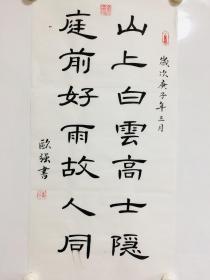 歲次庚子年三月
山上白雲高士隱
庭前好雨故人同
歐強書